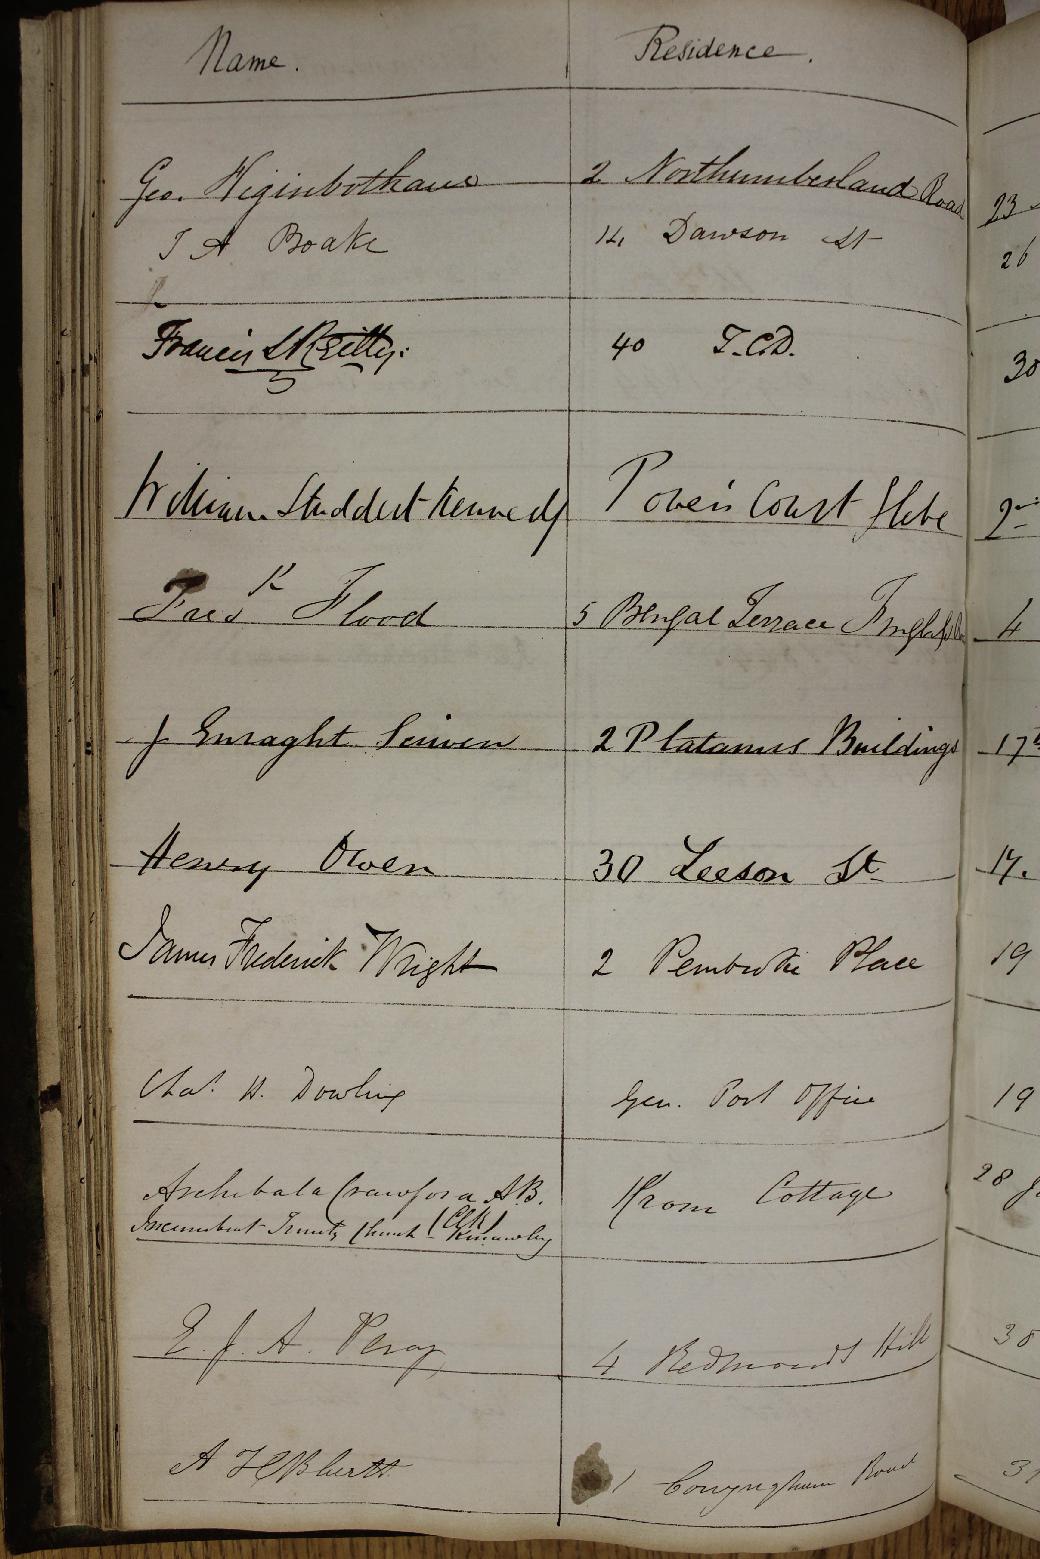 Name. Residence.
Geo. Higinbotham 2 Northumberland Road 23
J A Boake 14 Dawson St 26
Francis 40 T.C.D. 30
William Studdert Kennedy Powers Court Glebe 2
Fred k Flood 5 Bengal Terrace 4
J Enraght 2 Platanus Buildings 17
Henry Owen 30 Leeson St 17.
James Frederick Wright 2 Pembroke Place 19
Chas. H. Dowling Gen. Post Office 19
Archibald Crawford A.B. Krom Cottage 28
Incumbent Trinity Church (Clk)
E. J. A. 4 Redmonds Hill 30
A 1 Conyngham Road 31